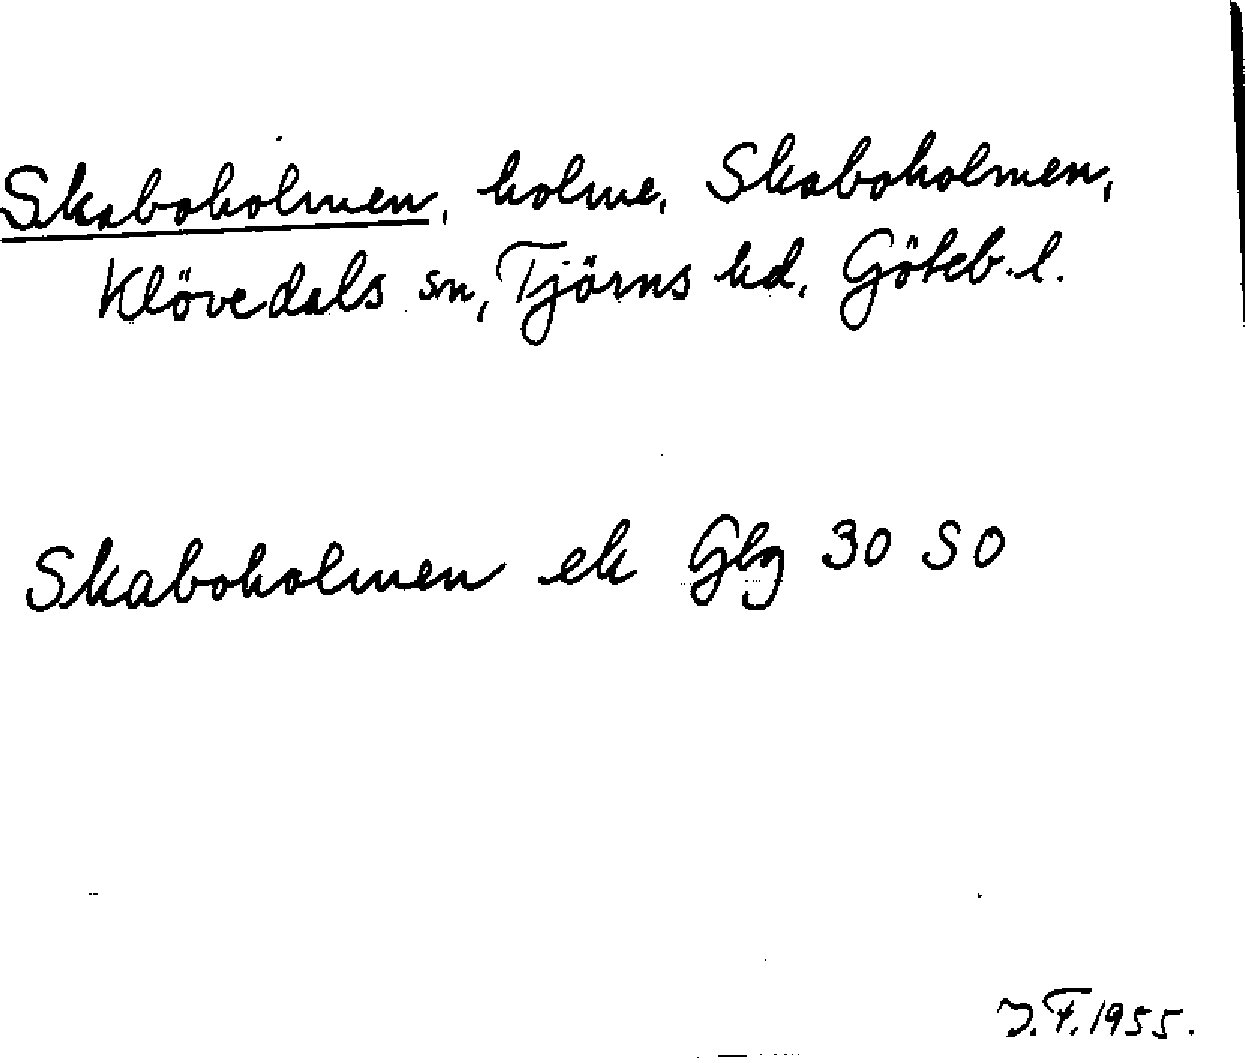 Skaboholmen, holme, Skaboholmen,
Klövedals sn, Tjörns hd, Göteb. l.
Skaboholmen ek Gbg 30 SO
J. F. 1955.